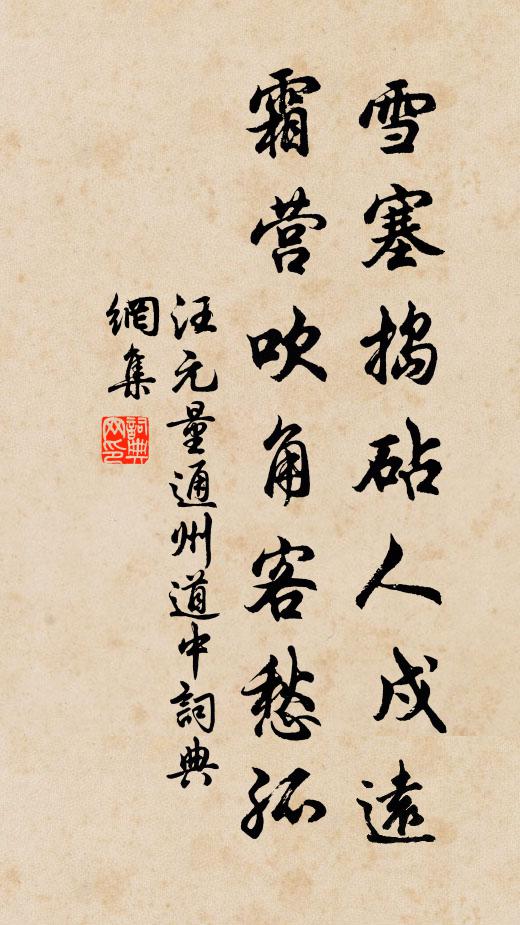 雪塞捣砧人戍遠
霜营吹角客愁孤
汪元量通州道中詞典
網集
詞典网印